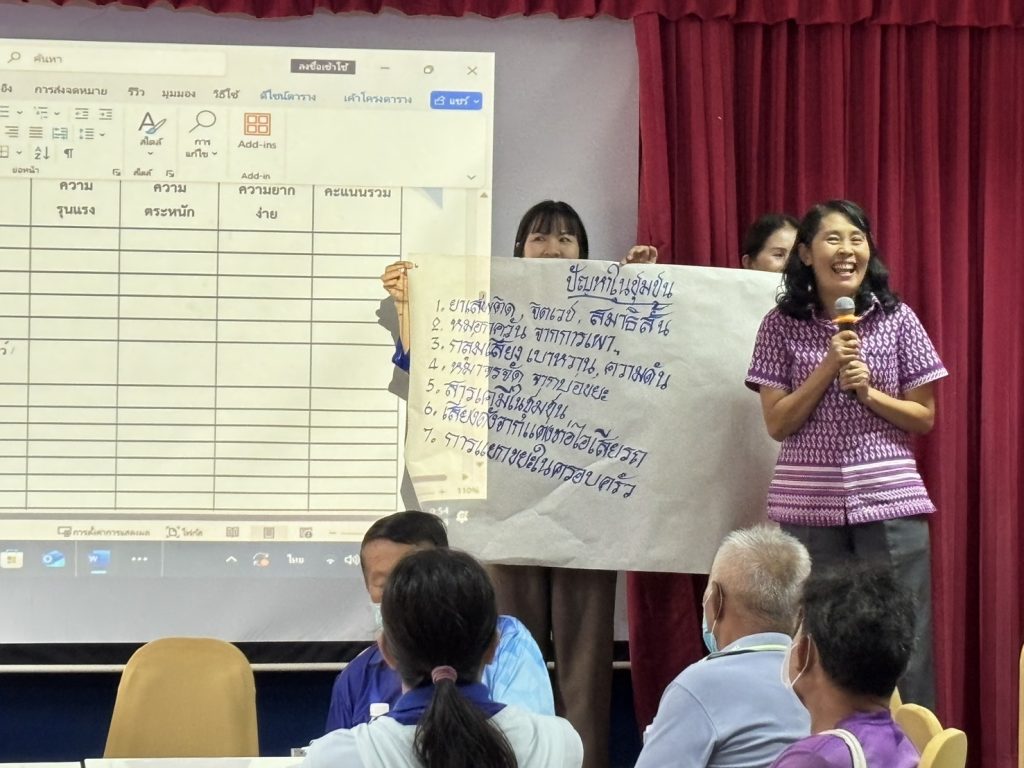 ค้นหา
ลงชื่อเข้าใช้
การส่งจดหมาย รีวิว มุมมอง วิธีใช้ ดีไซน์ตาราง เค้าโครงตาราง แชร์
สไตล์ การแก้ไข Add-ins
ย่อหน้า สไตล์ Add-in
ความรุนแรง ความตระหนัก ความยากง่าย คะแนนรวม
ปัญหาในชุมชน
1. ยาเสพติด, จิตเวช, สมาธิสั้น
2. หมอกควัน จากการเผา
3. กลุ่มเสี่ยง เบาหวาน, ความดัน
4. จากบ่อขยะ
5. สารเคมีในชุมชน
6. เสียงดังจากแต่งท่อไอเสียรถ
7. การแยกขยะในครอบครัว
110%
การตั้งค่าการแสดงผล โฟกัส
ไทย